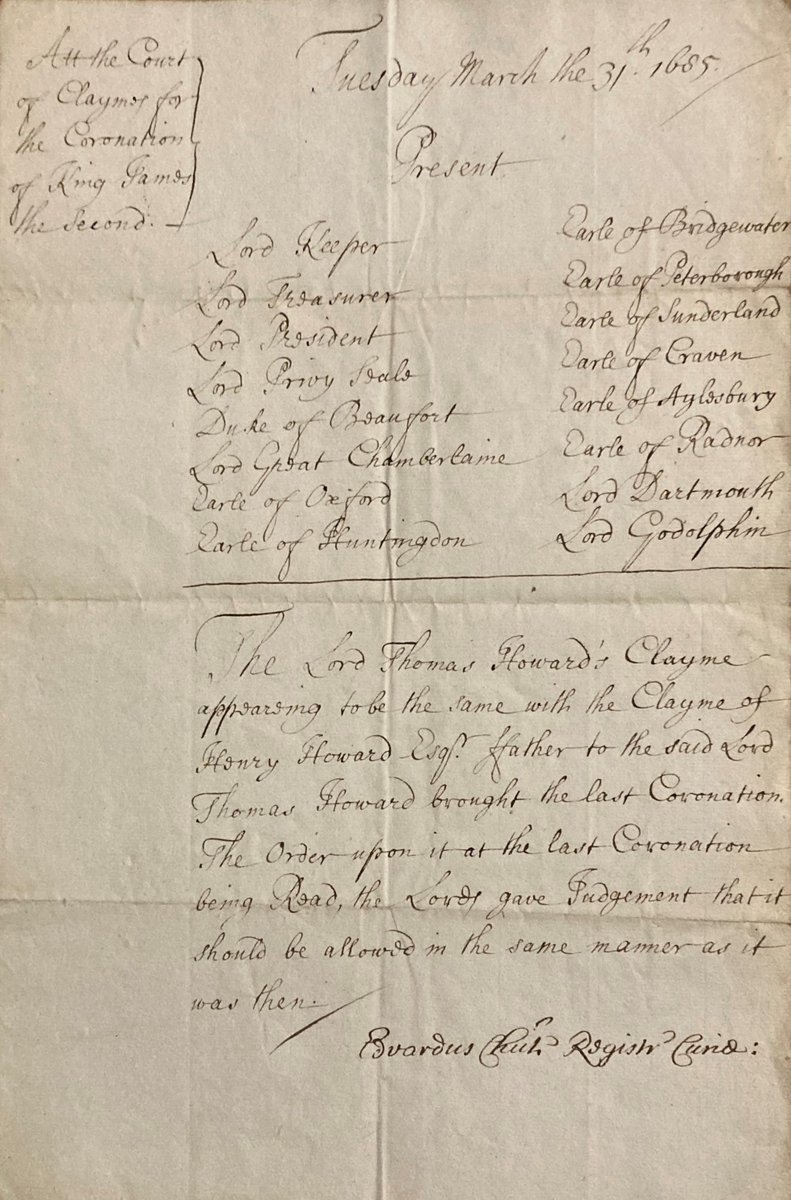 Att the Court
of Claymes for
the Coronation
of King James
the Second.
Tuesday March the 31th. 1685.
Present
Lord Keeper
Lord Treasurer
Lord President
Lord Privy Seale
Duke of Beaufort
Lord Great Chamberlaine
Earle of Oxford
Earle of Huntingdon
Earle of Bridgewater
Earle of Peterborough
Earle of Sunderland
Earle of Craven
Earle of Aylesbury
Earle of Radnor
Lord Dartmouth
Lord Godolphin
The Lord Thomas Howard's Clayme
appeareing to be the same with the Clayme of
Henry Howard Esqr. ffather to the said Lord
Thomas Howard brought the last Coronation.
The Order upon it at the last Coronation
being Read, the Lords gave Judgement that it
should be allowed in the same manner as it
was then.
Edvardus Registr Curiæ: